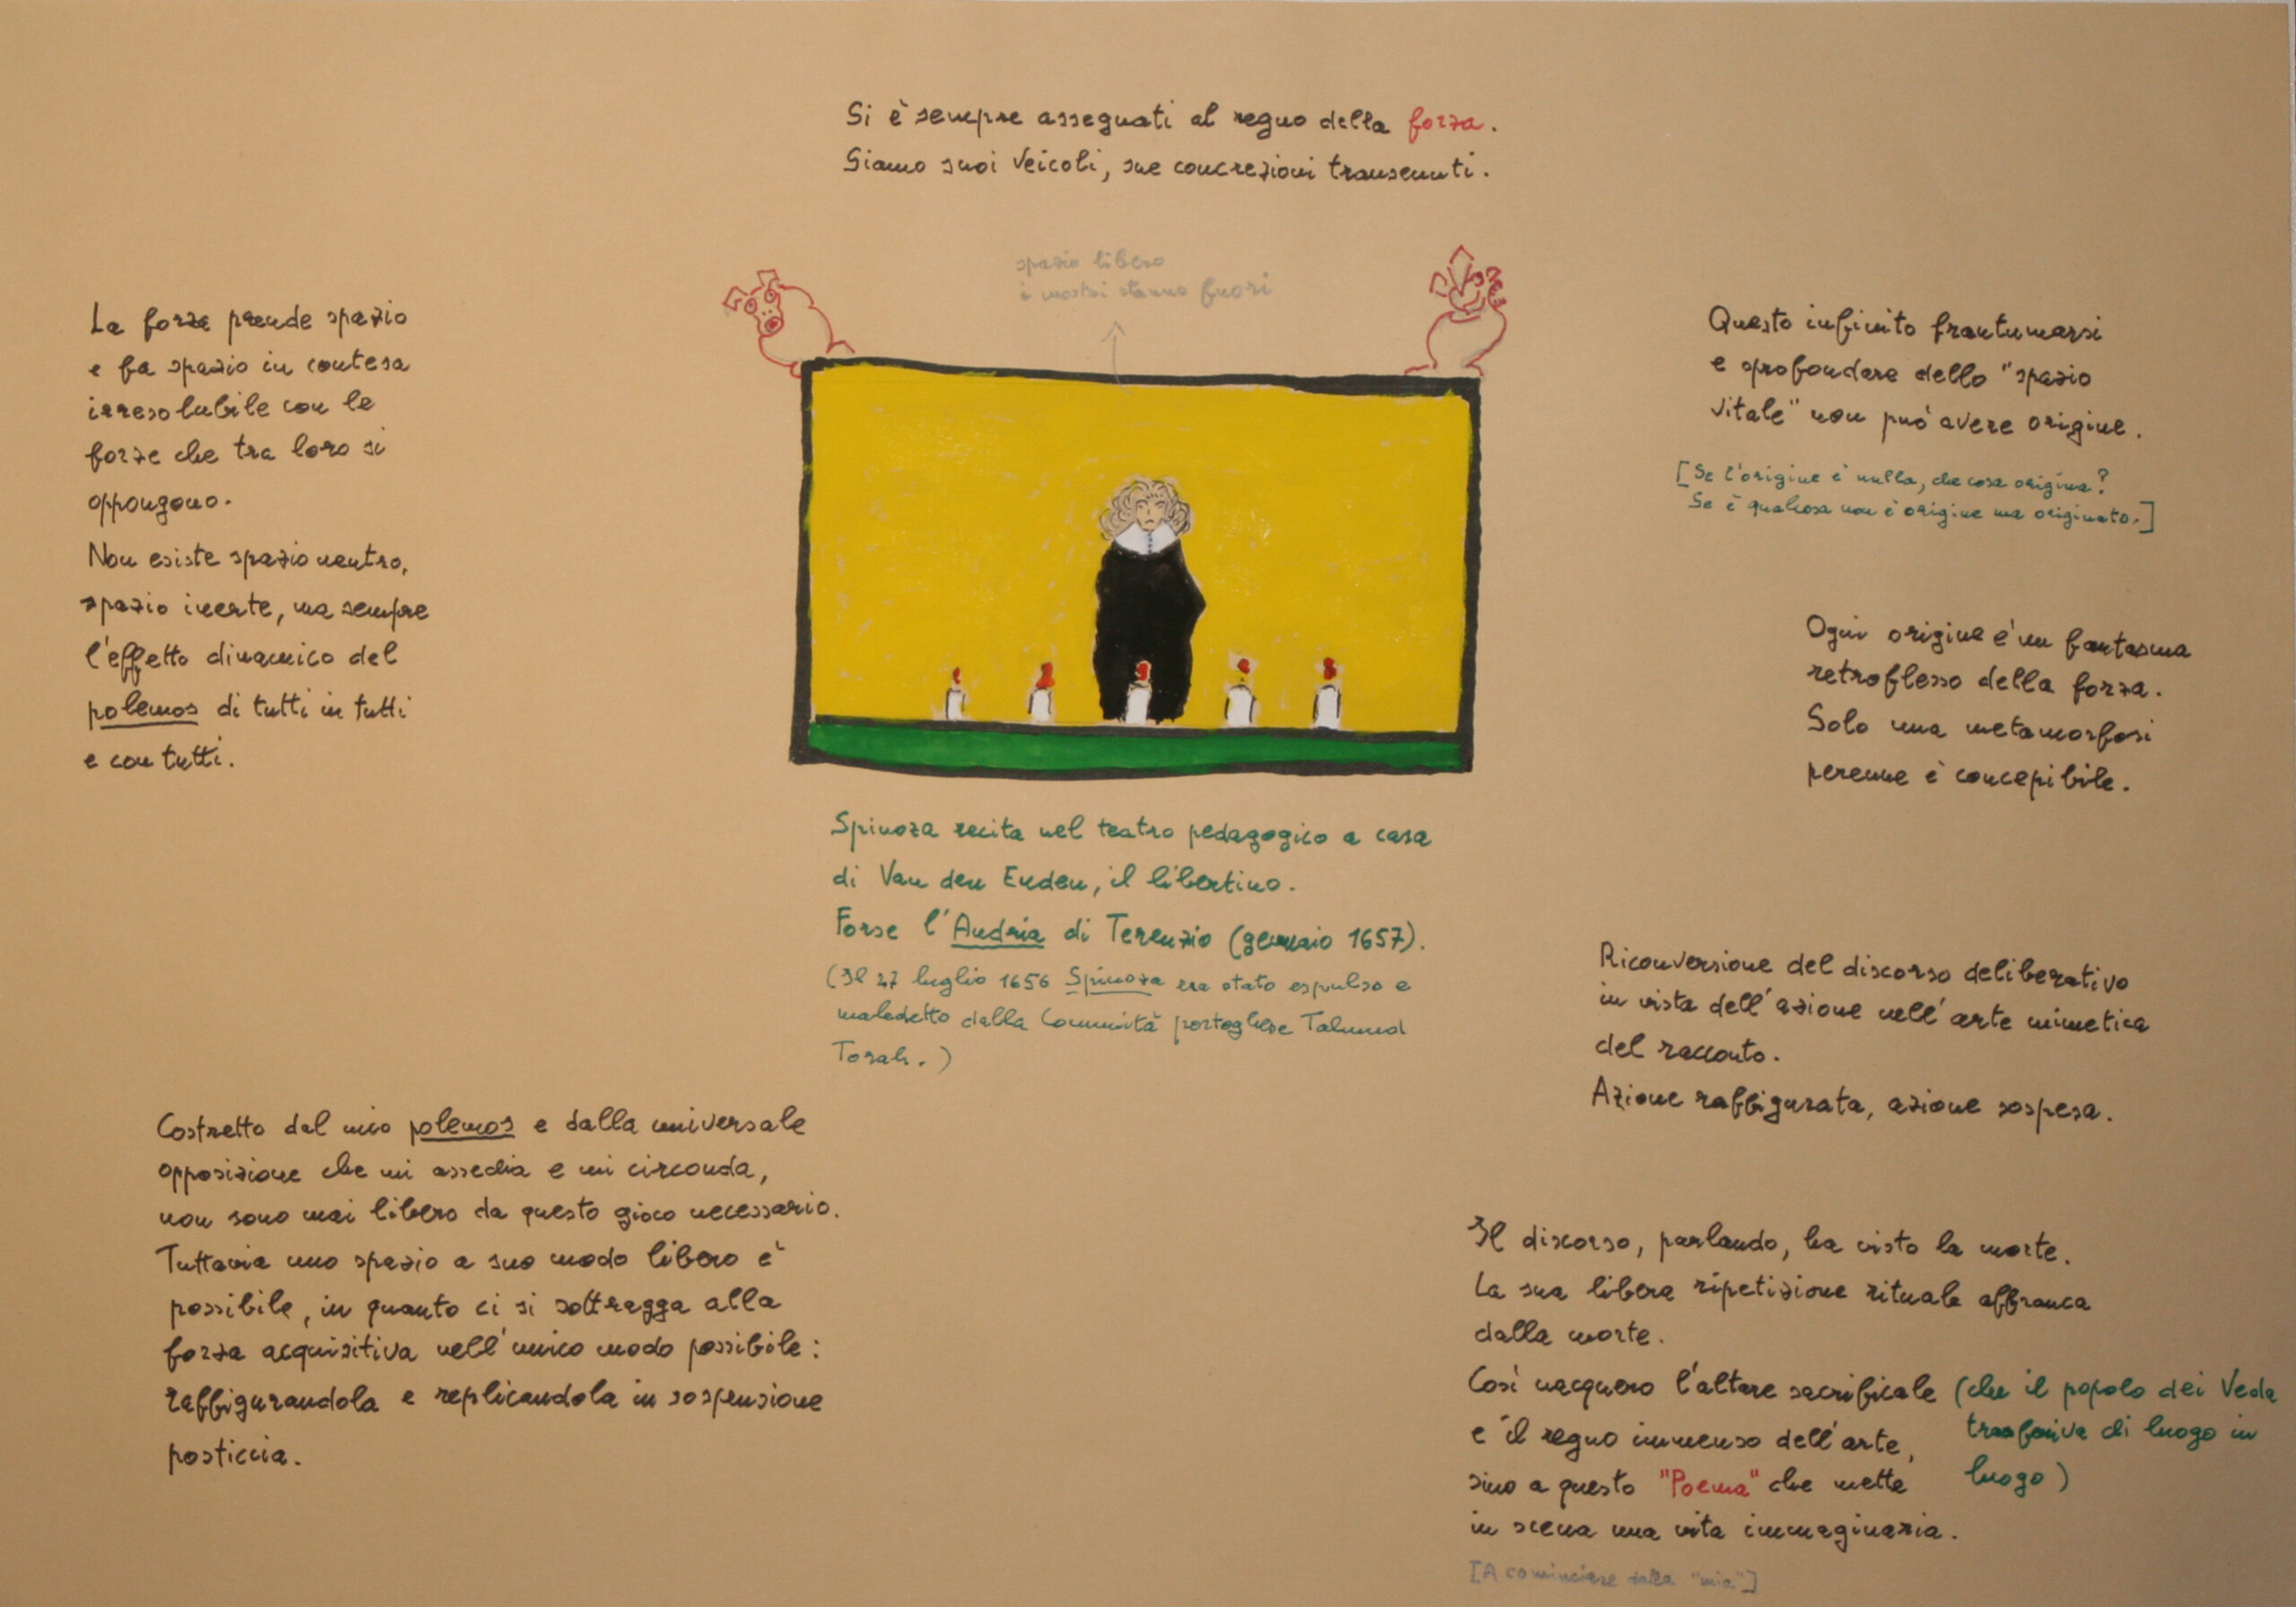 Si è sempre assegnati al regno della forza.
Siamo suoi veicoli, sue concrezioni transeunti.
spazio libero
i mostri stanno fuori
La forza prende spazio
e fa spazio in contesa
irresolubile con le
forze che tra loro si
oppongono.
Non esiste spazio neutro,
spazio inerte, ma sempre
l'effetto dinamico del
polemos di tutti in tutti
e con tutti.
Questo infinito frantumarsi
e sprofondare dello "spazio
vitale" non può avere origine.
[Se l'origine è nulla, che cosa origina?
Se è qualcosa non è origine ma originato.]
Ogni origine è un fantasma
retroflesso della forza.
Solo una metamorfosi
perenne è concepibile.
Spinoza recita nel teatro pedagogico a casa
di Van den Enden, il libertino.
Forse l'Andria di Terenzio (gennaio 1657).
(Il 27 luglio 1656 Spinoza era stato espulso e
maledetto dalla Comunità portoghese Talmud
Torah.)
Riconversione del discorso deliberativo
in vista dell'azione nell'arte mimetica
del racconto.
Azione raffigurata, azione sospesa.
Costretto dal mio polemos e dalla universale
opposizione che mi assedia e mi circonda,
non sono mai libero da questo gioco necessario.
Tuttavia uno spazio a suo modo libero è
possibile, in quanto ci si sottragga alla
forza acquisitiva nell'unico modo possibile:
raffigurandola e replicandola in sospensione
posticcia.
Il discorso, parlando, ha visto la morte.
La sua libera ripetizione rituale affranca
dalla morte.
Così nacquero l'altare sacrificale (che il popolo dei Veda
e il regno immenso dell'arte, trasferiva di luogo in
sino a questo "Poema" che mette luogo)
in scena una vita immaginaria.
[A cominciare dalla "mia"]